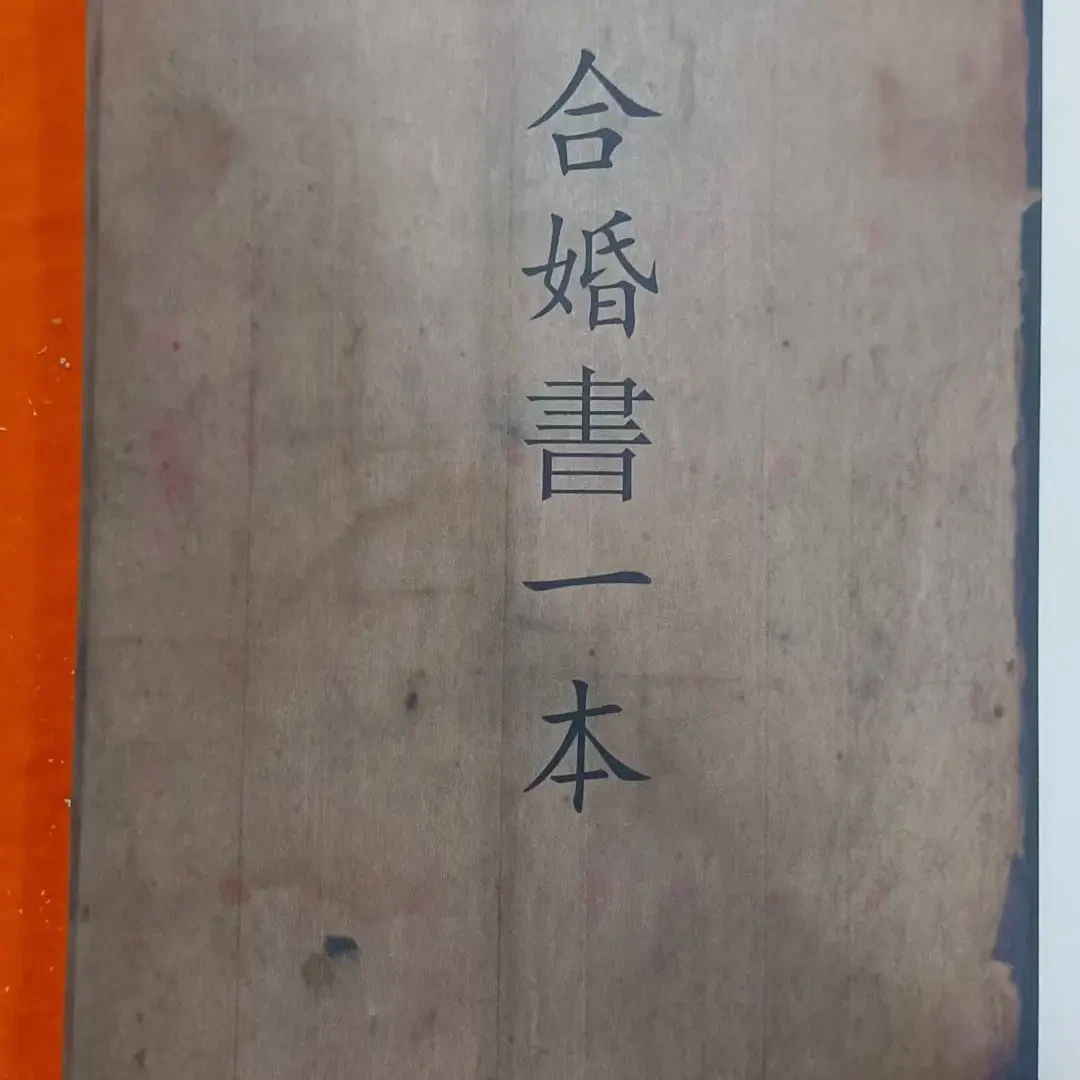 合婚書一本